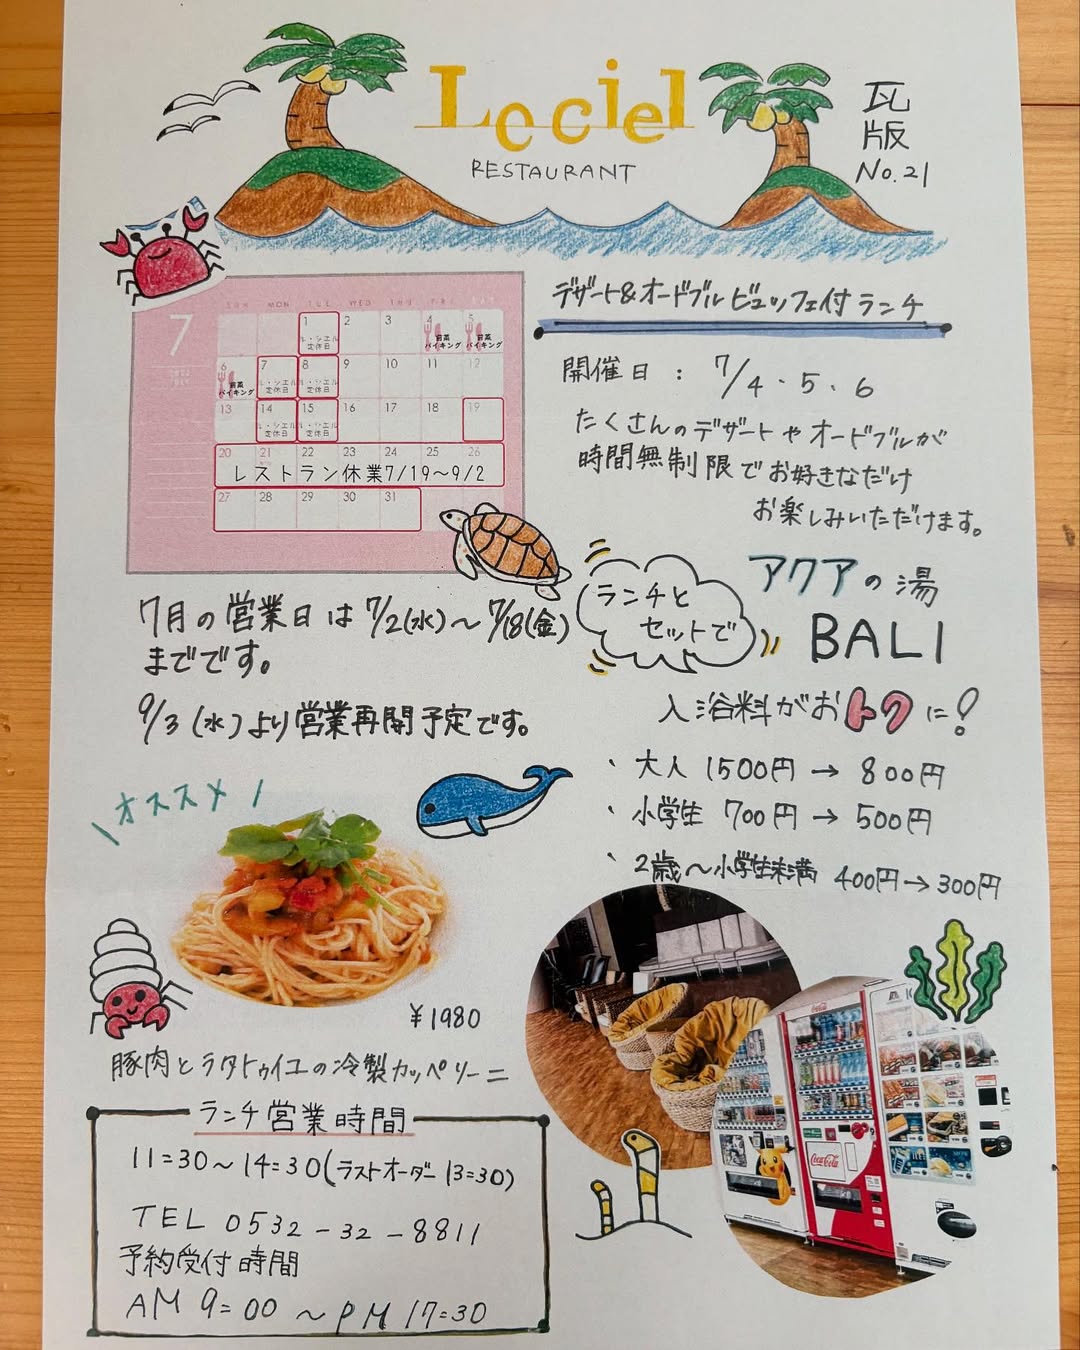 Le ciel
RESTAURANT
瓦版
No.21
7
SUN MON TUE WED THU FRI SAT
1 2 3 4 5
ル・シエル定休日
前菜バイキング
前菜バイキング
6 7 8 9 10 11 12
前菜バイキング
ル・シエル定休日
ル・シエル定休日
13 14 15 16 17 18 19
ル・シエル定休日
ル・シエル定休日
20 21 22 23 24 25 26
レストラン休業7/19〜9/2
27 28 29 30 31
7月の営業日は7/2(水)〜7/18(金)
までです。
9/3(水)より営業再開予定です。
デザート&オードブルビュッフェ付ランチ
開催日:7/4・5・6
たくさんのデザートやオードブルが
時間無制限でお好きなだけ
お楽しみいただけます。
ランチと
セットで
アクアの湯
BALI
入浴料がおトクに!
・大人 1500円→800円
・小学生 700円→500円
・2歳〜小学生未満 400円→300円
オススメ!
¥1980
豚肉とラタトゥイユの冷製カッペリーニ
ランチ営業時間
11:30〜14:30(ラストオーダー 13:30)
TEL 0532-32-8811
予約受付時間
AM 9:00 〜 PM 17:30
Coca-Cola
Coca-Cola